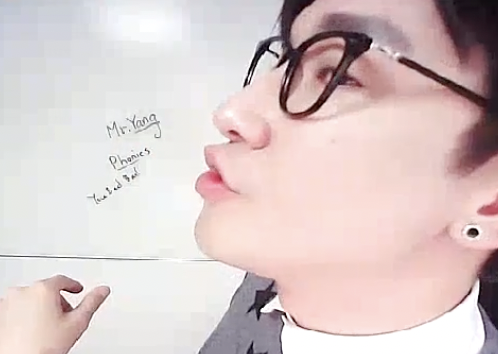 Mr. Yang
Phonics
You Bad Bad